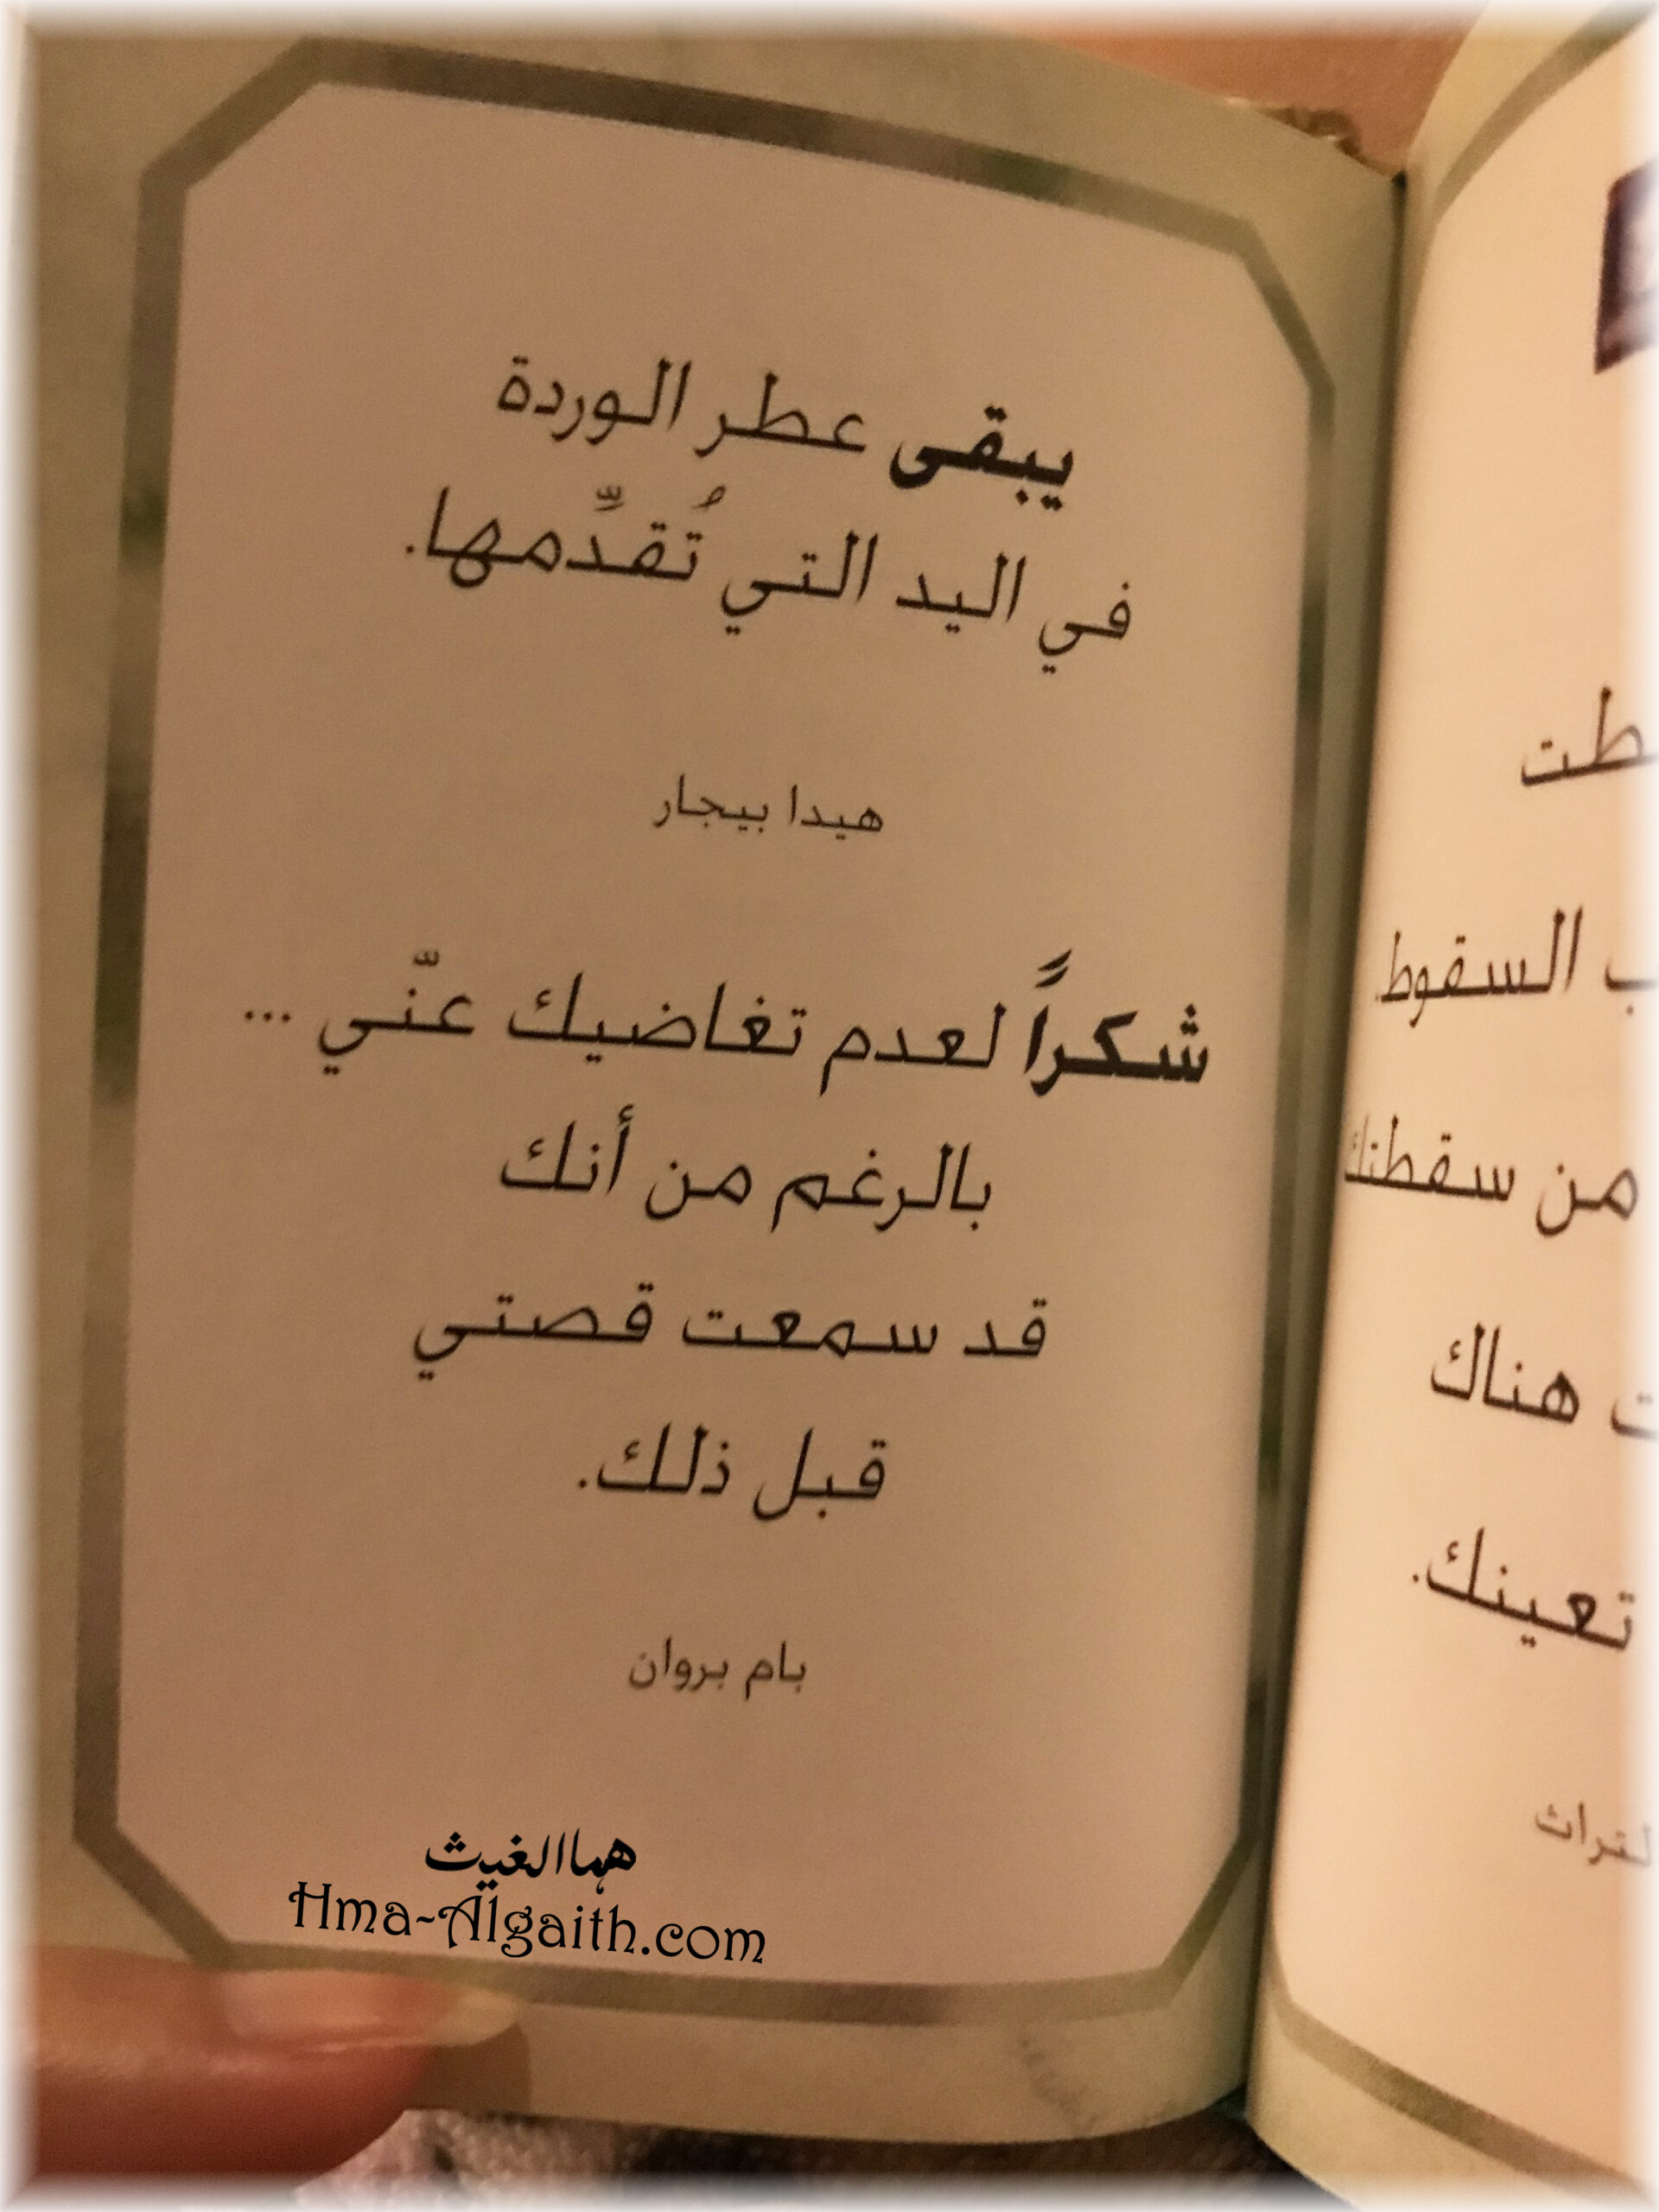 يبقى عطر الوردة
في اليد التي تُقدِّمها.
هيدا بيجار
شكراً لعدم تغاضيك عنّي ...
بالرغم من أنك
قد سمعت قصتي
قبل ذلك.
بام بروان
هماالغيث
Hma-Algaith.com
السقوط.
من سقطتك
هناك
تعينك.